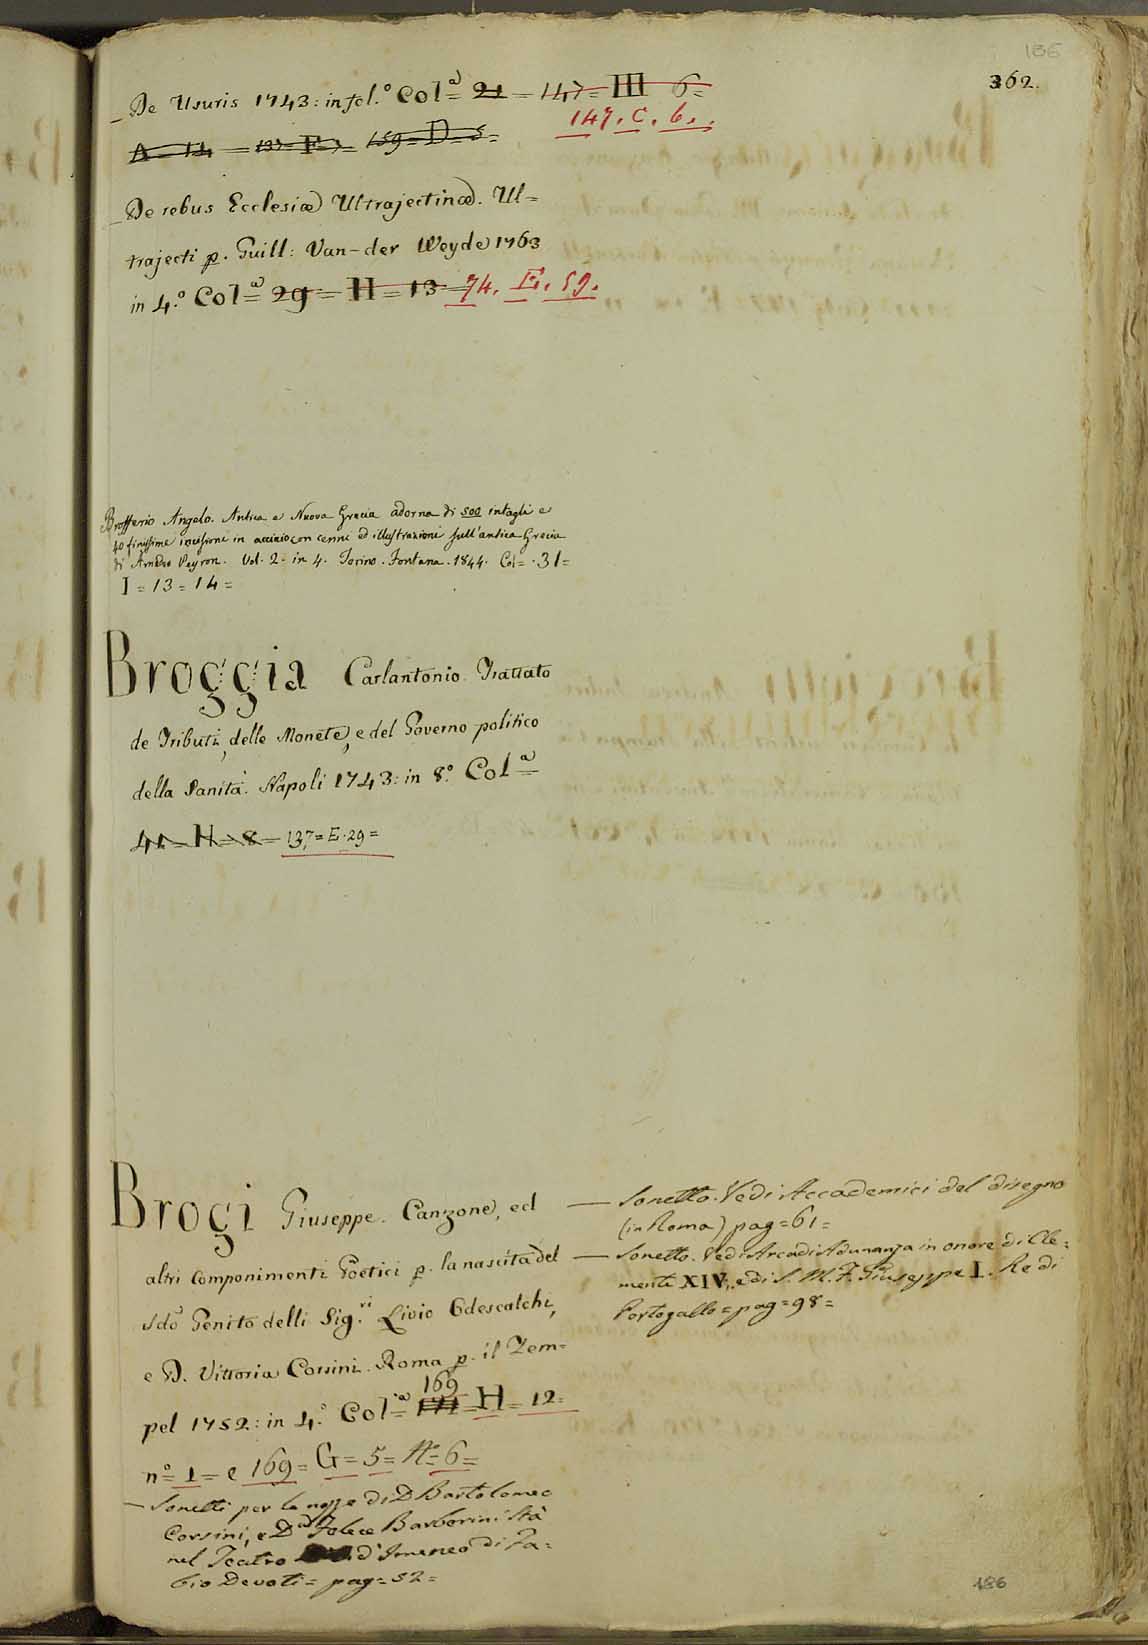 186
362.
De Usuris 1743: in fol.º Colª= 21 = 147 III 6=
147. C. 6.
A = 14 = 133 = F = 159 = D = 5 =
De rebus Ecclesiæ Ultrajectinæ. Ul=
trajecti p. Guill: Van-der Weyde 1763
in 4.º Colª= 29 = H = 13 = 74. E. 59.
Brofferio Angelo. Antica e Nuova Grecia adorna di 500 intagli e
40 finissime incisioni in acciaio con cenni ed illustrazioni sull'antica Grecia
di Amedeo Peyron. Vol. 2. in 4. Torino. Fontana. 1844. Col= . 31=
I = 13 = 14 =
Broggia Carlantonio. Trattato
de Tributi, delle Monete, e del Governo politico
della Sanità. Napoli 1743: in 8.º Colª=
41 = H = 8 = 137 = E. 29 =
Brogi Giuseppe. Canzone, ed
altri componimenti Poetici p. la nascita del
sdo Genito delli Sig.ri Livio Odescalchi,
e D. Vittoria Corsini. Roma p. il Zem=
169
pel 1752: in 4.º Colª= 171 = H = 12=
nº= 1 = e 169 = G = 5 = Nº= 6 =
— Sonetti per le nozze di D Bartolomeo
Corsini, e Dª Felice Barberini Stà
nel Teatro d'Imeneo di Fa=
bio Devoti = pag = 52 =
— Sonetto. Vedi Accademici del disegno
(in Roma) pag = 61 =
— Sonetto. Vedi Arcadi Adunanza in onore di Cle=
mente XIV., e di S. M. F. Giuseppe I. Re di
Portogallo = pag = 98 =
186